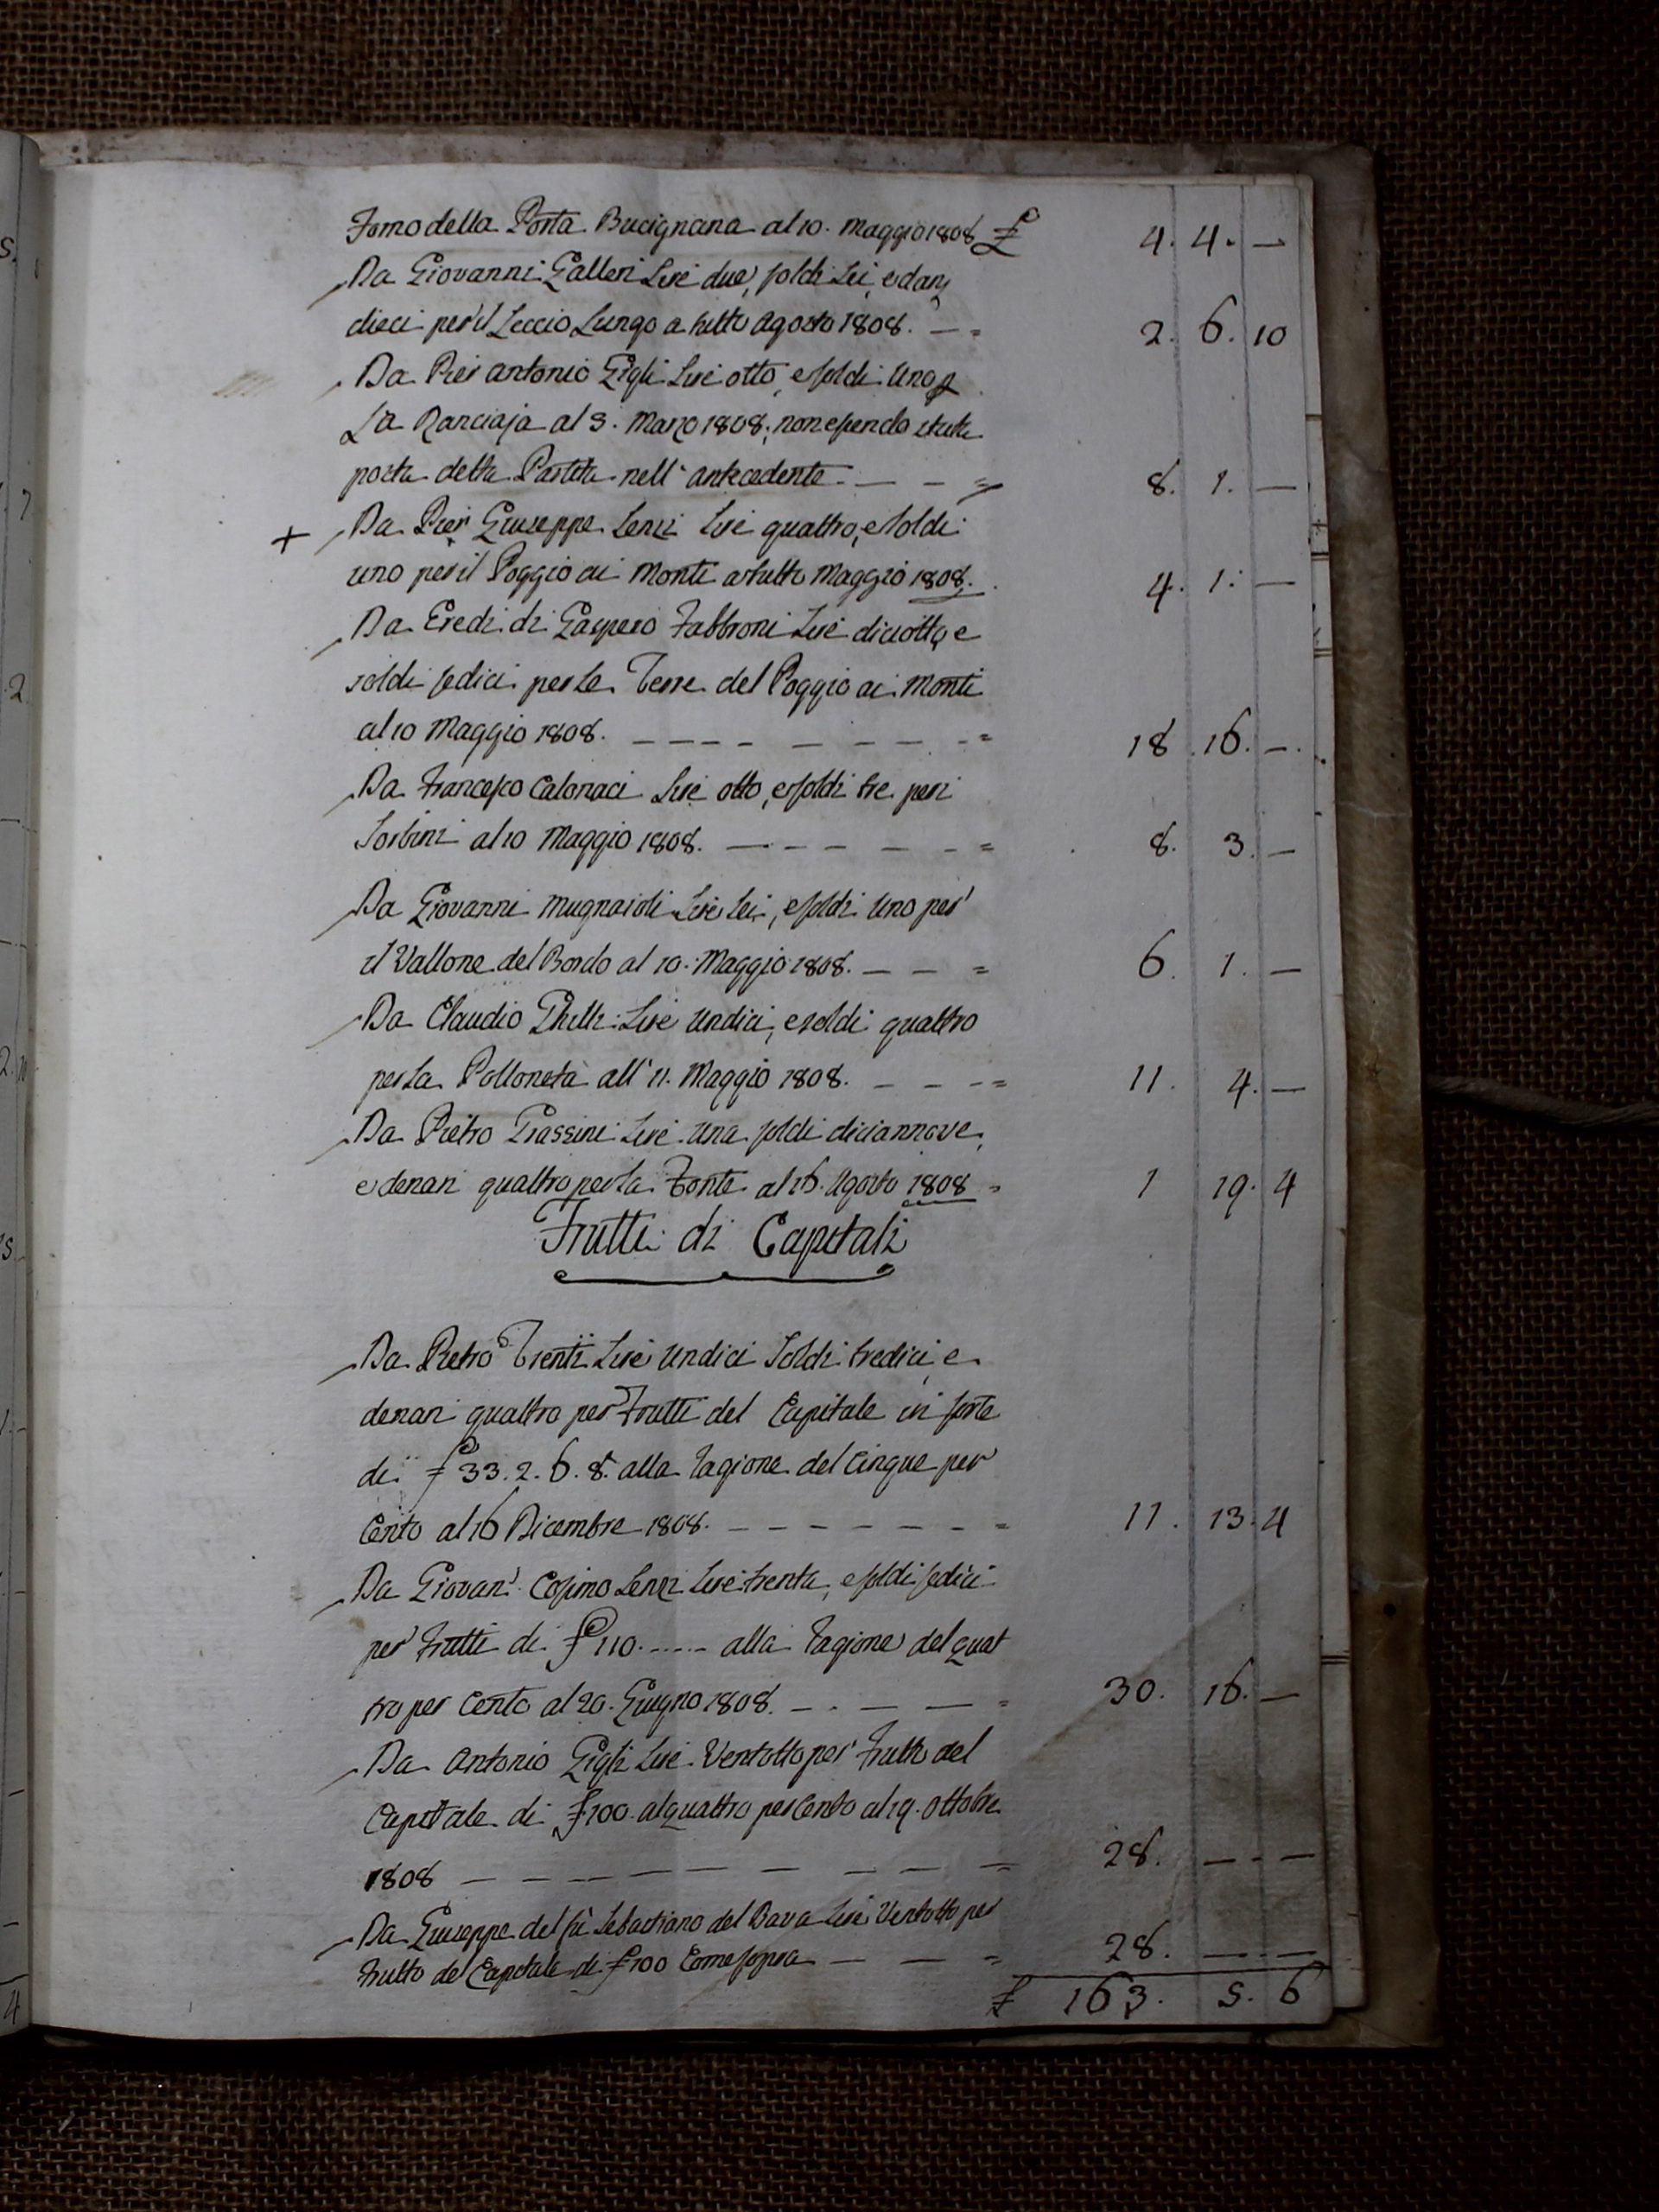 Forno della Porta Bucignana al 10. Maggio 1808 £ 4. 4. —
Da Giovanni Galleri Lire due, soldi sei, e dan.
dieci per il Leccio Lungo a tutto Agosto 1808. — = 2. 6. 10
Da Pier Antonio Gigli Lire otto, e soldi uno p
La Ranciaja al 3. Marzo 1808; non essendo stata
posta detta Partita nell' antecedente — — = 8. 1. —
+ Da Pier Giuseppe Lenzi Lire quattro, e soldi
uno per il Poggio ai Monti a tutto Maggio 1808. 4. 1. —
Da Eredi di Gaspero Fabbroni Lire diciotto, e
soldi sedici per le Terre del Poggio ai Monti
al 10 Maggio 1808. — — — — — — — = 18. 16. —
Da Francesco Calonaci Lire otto, e soldi tre per i
Sorbini al 10 Maggio 1808. — — — — — = 8. 3. —
Da Giovanni Mugnaioli Lire sei, e soldi uno per
il Vallone del Bordo al 10. Maggio 1808. — — = 6. 1. —
Da Claudio Lire undici, e soldi quattro
per la Polloneta all' 11. Maggio 1808. — — — = 11. 4. —
Da Pietro Grassini Lire una soldi diciannove,
e denari quattro per la Fonte al 16. Agosto 1808 = 1 19. 4
Frutti di Capitali
Da Pietro Trenti Lire undici Soldi tredici, e
denari quattro per Frutti del Capitale in sorte
di £ 33. 2. 6. 8. alla ragione del Cinque per
Cento al 16 Dicembre 1808. — — — — — — = 11. 13. 4
Da Giovan' Cosimo Lenzi Lire trenta, e soldi sedici
per frutti di £ 110. — alla ragione del quat
tro per Cento al 20. Giugno 1808. — — — — = 30. 16. —
Da Antonio Gigli Lire Ventotto per frutto del
Capitale di £ 100. al quattro per Cento al 19. Ottobre
1808 — — — — — — — — — = 28. — —
Da Giuseppe del fù Sebastiano del Bava Lire Ventotto per
frutto del Capitale di £ 100 Come sopra — — = 28. — —
£ 163. 5. 6